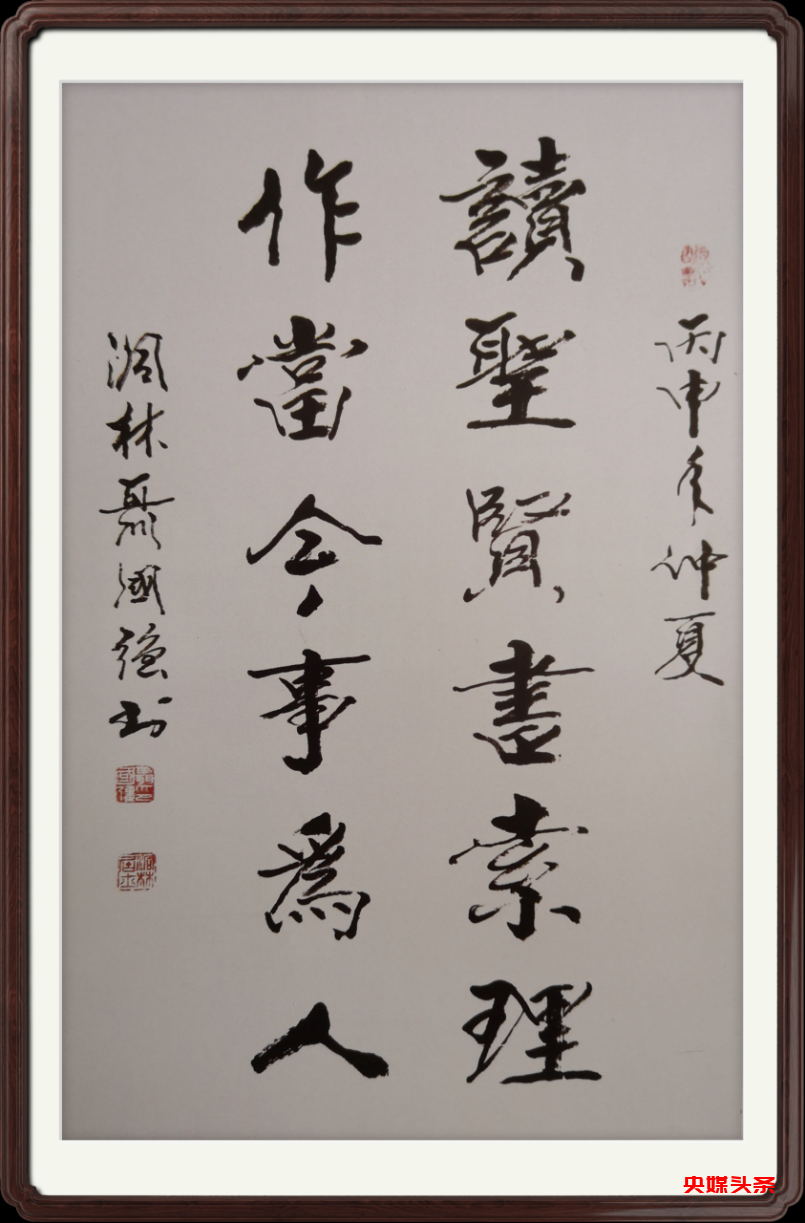 丙申年仲夏
讀聖賢書索理
作當今事為人
林聶國強书
央媒头条